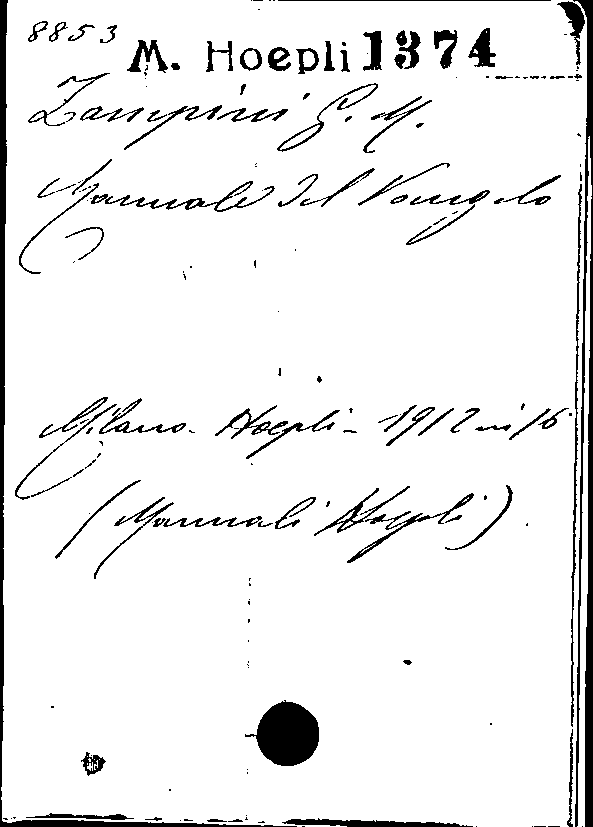 8853
M. Hoepli 1374
Zampini G. M.
Manuale del Vangelo
Milano - Hoepli - 1912 in 16
(Manuali Hoepli)